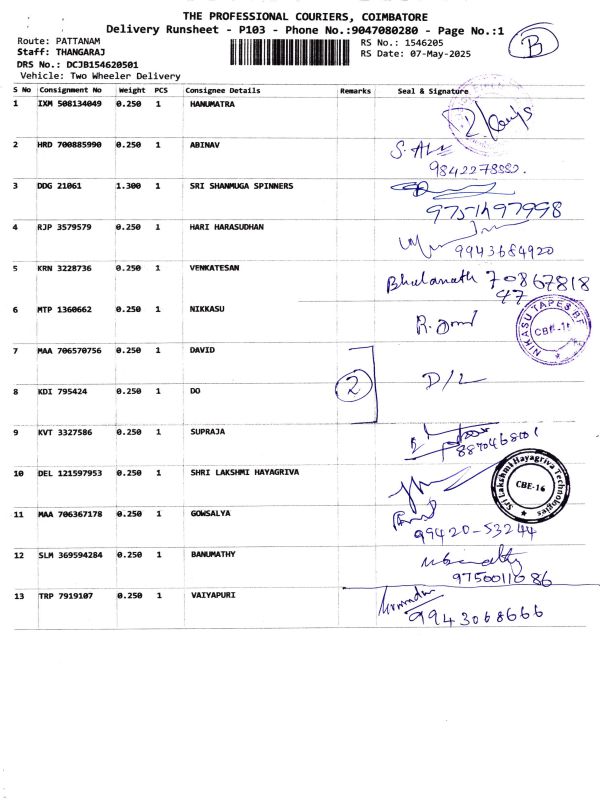 THE PROFESSIONAL COURIERS, COIMBATORE
Delivery Runsheet - P103 - Phone No.:9047080280 - Page No.:1
Route: PATTANAM RS No.: 1546205
Staff: THANGARAJ RS Date: 07-May-2025
DRS No.: DCJB154620501
Vehicle: Two Wheeler Delivery
B
S No Consignment No Weight PCS Consignee Details Remarks Seal & Signature
1 IXM 508134049 0.250 1 HANUMATRA
2 HRD 700885990 0.250 1 ABINAV
9842278552.
3 DDG 21061 1.300 1 SRI SHANMUGA SPINNERS
4 RJP 3579579 0.250 1 HARI HARASUDHAN
9943684920
5 KRN 3228736 0.250 1 VENKATESAN
Bhulanath 70867818
97
6 MTP 1360662 0.250 1 NIKKASU
NIKASU TAPES
CBE-16
7 MAA 706570756 0.250 1 DAVID
2 D/L
8 KDI 795424 0.250 1 DO
9 KVT 3327586 0.250 1 SUPRAJA
10 DEL 121597953 0.250 1 SHRI LAKSHMI HAYAGRIVA
Sri Lakshmi Hayagriva Technologies
CBE-16
11 MAA 706367178 0.250 1 GOWSALYA
99420-53244
12 SLM 369594284 0.250 1 BANUMATHY
9750011086
13 TRP 7919107 0.250 1 VAIYAPURI
9943068666